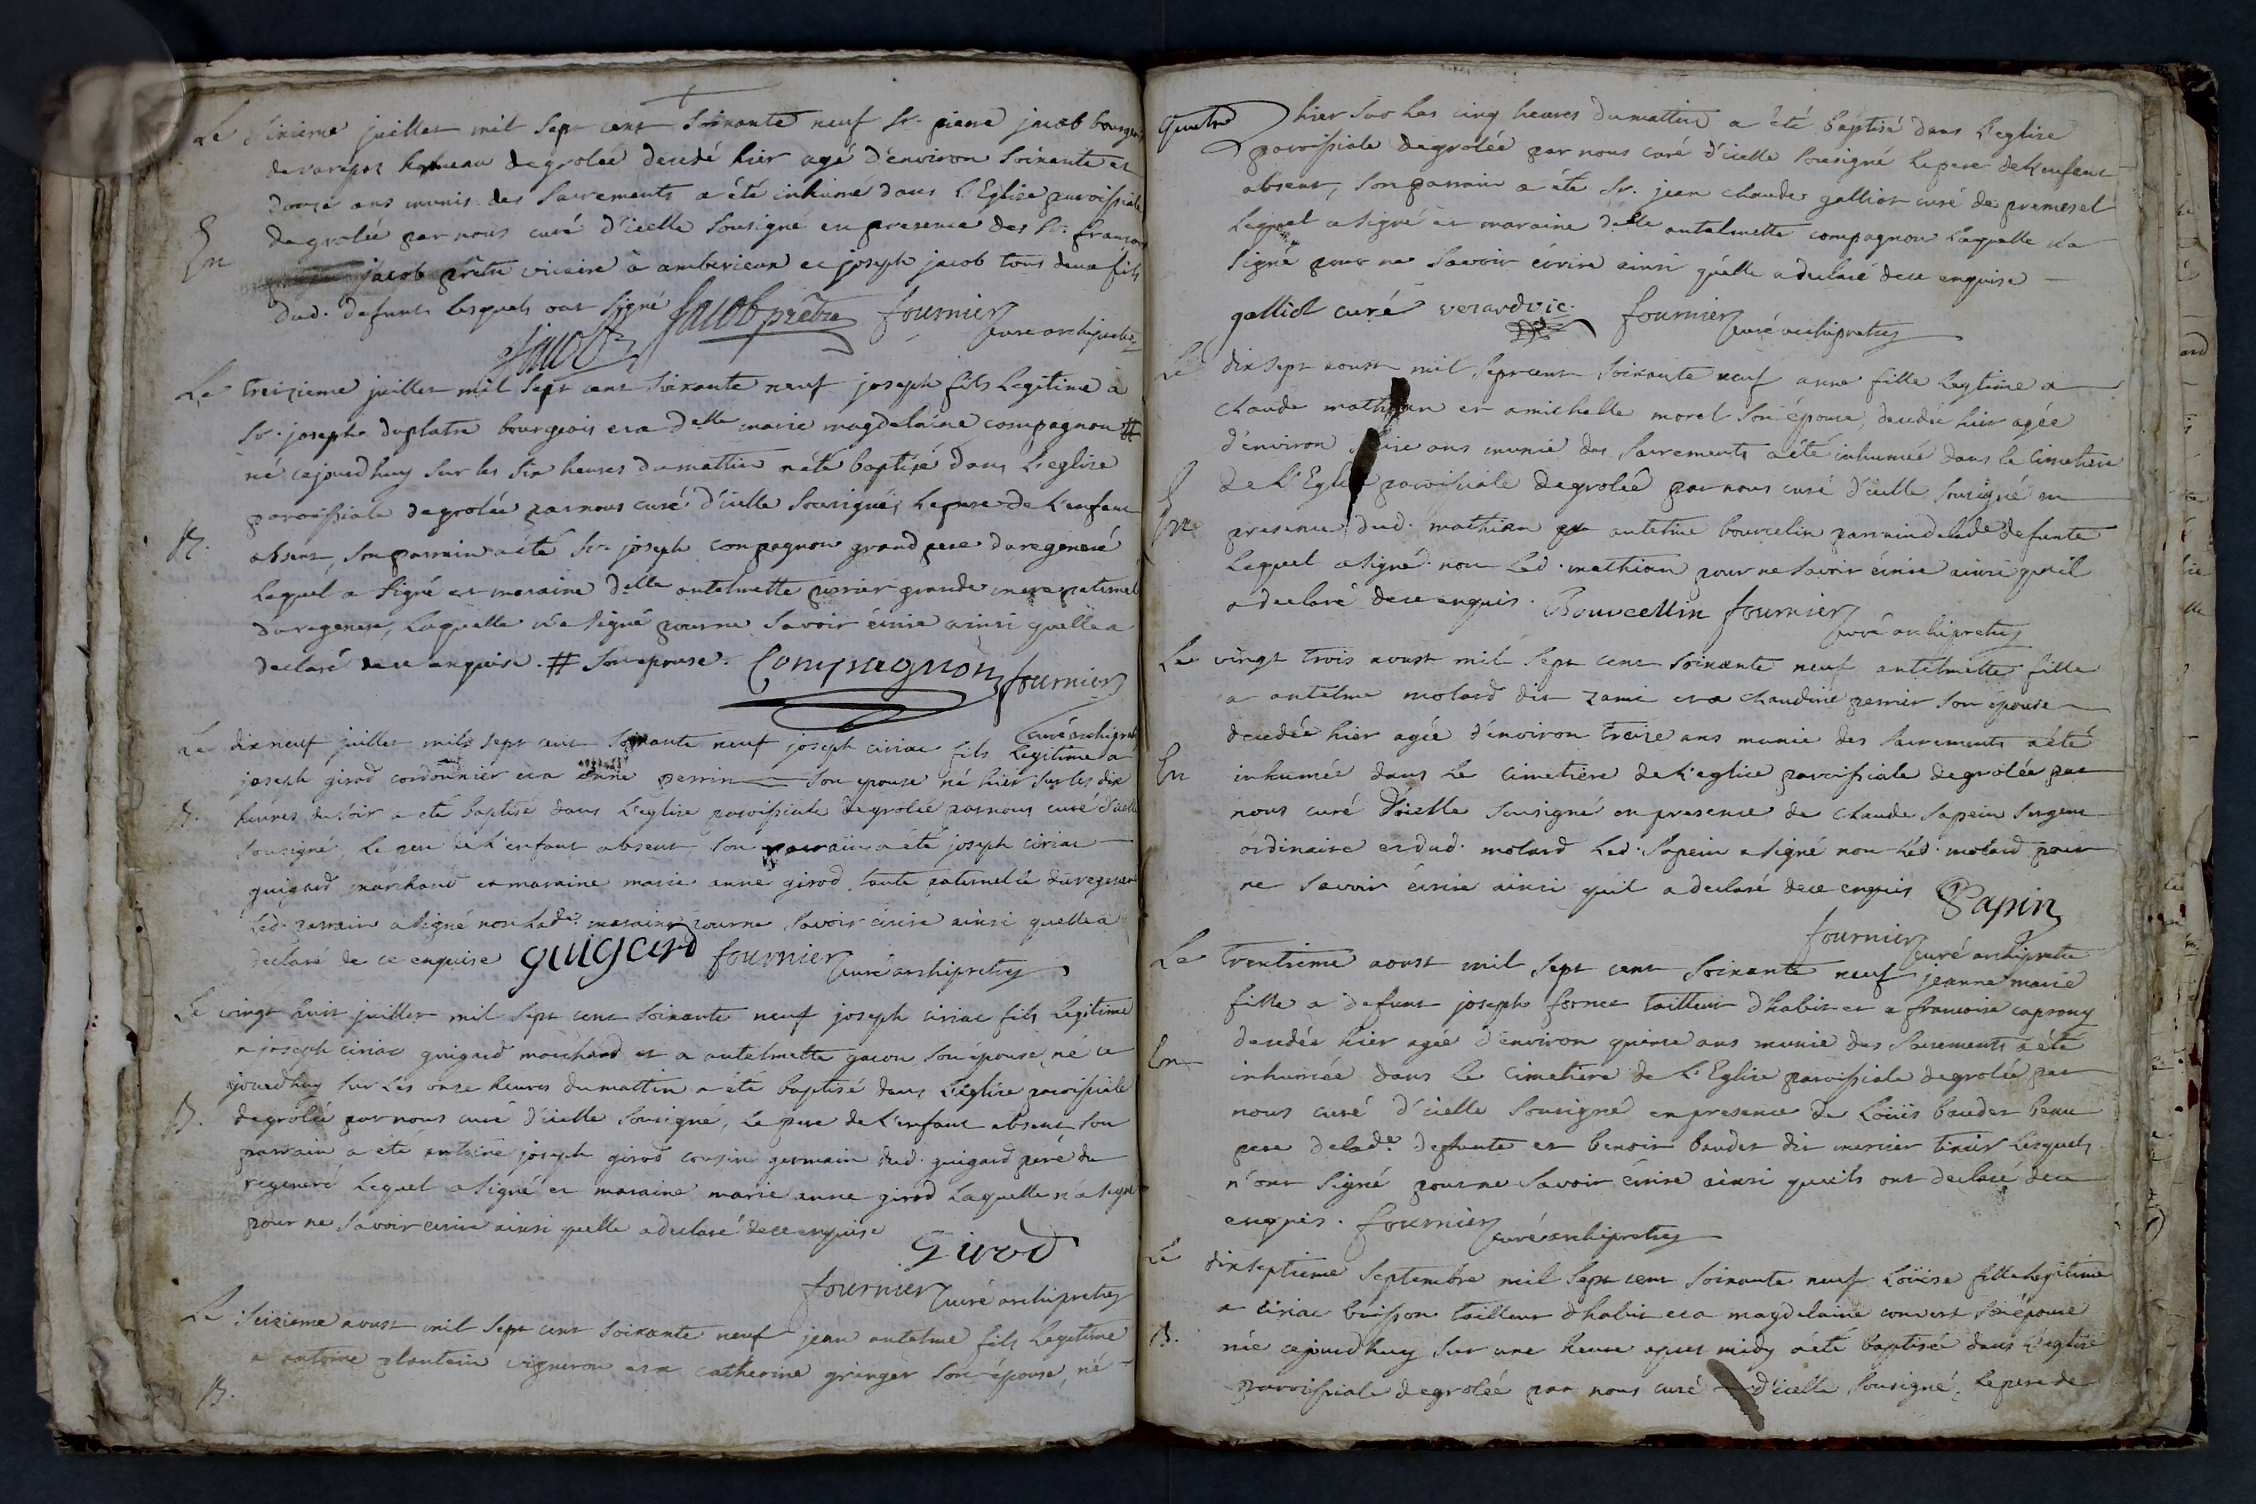 Le sixieme juillet mil sept cent soixante neuf Sr. piere jacob bourgeois
de vareppe hameau de grolée decedé hier agé d'environ soixante et
douze ans munis des sacrements a été inhumé dans l'Eglise paroissiale
En
de grolée par nous curé d'icelle sousigné en presence des Srs. francois
jacob prêtre vicaire a amberieux et joseph jacob tous deux fils
dud. defunt lesquels ont signé Jacob prêtre fournier
Jacob curé archiprêtre
Le treizieme juillet mil sept cent soixante neuf joseph fils legitime a
Sr. joseph duplatre bourgeois et a delle marie magdelaine compagnon #
né cejourdhuy sur les six heures du mattin a été baptisé dans l'eglise
paroissiale de grolée par nous curé d'icelle sousigné, le pere de l'enfant
B.
absent, son parrain a été Sr. joseph compagnon grand pere du regeneré
lequel a signé et maraine delle antelmette perrier grande mere paternel
du regeneré, laquelle n'a signé pour ne savoir écrire ainsi quelle a
declaré de ce enquise. # son epouse. Compagnon fournier
curé archiprêtre
Le dix neuf juillet mil sept cent soixante neuf joseph ciriac fils legitime a
joseph girod cordonnier et a anne perrin son epouse né hier sur les dix
B.
heures du soir a été baptisé dans l'eglise paroissiale de grolée par nous curé d'icelle
sousigné, le pere de l'enfant absent son parrain a été joseph ciriac
guigard marchand et maraine marie anne girod tante paternelle du regeneré
led. parrain a signé non lade. maraine pour ne savoir écrire ainsi quelle a
declaré de ce enquise guigard fournier curé archipretre
Le vingt huit juillet mil sept cent soixante neuf joseph ciriac fils legitime
a joseph ciriac guigard marchand et a antelmette gacon son épouse, né ce
jourdhuy sur les onze heures du mattin a été baptisé dans l'eglise paroissiale
B.
de grolée par nous curé d'icelle sousigné, le pere de l'enfant absent son
parrain a été antoine joseph girod cousin germain dud. guigard pere du
regeneré lequel a signé et maraine marie anne girod laquelle n'a signé
pour ne savoir ecrire ainsi quelle a declaré de ce enquise
Girod
fournier curé archipretre
Le seizieme aoust mil sept cent soixante neuf jean antelme fils legitime
a antoine plantin vigneron et a catherine granger son épouse, né
B.
hier sur les cinq heures du mattin a été baptisé dans l'eglise
paroissiale de grolée par nous curé d'icelle sousigné le pere de l'enfant
absent, son parrain a été Sr. jean claude galliot curé de premeyzel
lequel a signé et maraine delle antelmette compagnon laquelle n'a
signé pour ne savoir écrire ainsi qu'elle a declaré de ce enquise
galliot curé fournier curé archipretre
Le dix sept aoust mil sept cent soixante neuf anne fille legitime a
claude mathian et a michelle morel son épouse, decedée hier agée
d'environ ans munie des sacrements a été inhumée dans le cimetiere
de l'Eglise paroissiale de grolée par nous curé d'icelle sousigné en
En
presence dud. mathian et antelme bourcelin parrain de lade. defunte
lequel a signé non led. mathian pour ne savoir écrire ainsi qu'il
a declaré de ce enquis. Bourcellin fournier
curé archipretre
Le vingt trois aoust mil sept cent soixante neuf antelmette fille
a antelme molard dit zami et a claudine perrier son épouse
decedée hier agée d'environ treize ans munie des sacrements a été
En
inhumée dans le cimetiére de l'eglise paroissiale de grolée par
nous curé d'icelle sousigné en presence de claude sapein sergent
órdinaire et dud. molard led. sapein a signé non léd. molard pour
ne savoir écrire ainsi qu'il a declaré de ce enquis Sapin
fournier curé archiprêtre
Le trentieme aoust mil sept cent soixante neuf jeanne marie
fille a defunt joseph fornet tailleur d'habit et a francoise caprony
decedée hier agée d'environ quinze ans munie des sacrements a été
En
inhumée dans le cimetiere de l'Eglise paroissiale de grolée par
nous curé d'icelle sousigné en presence de Loüis baudet beau
pere de lade. defunte et benoit baudet dit mercier tissier lesquels
n'ont signé pour ne savoir écrire ainsi qu'ils ont declaré de ce
enquis. fournier curé archipretre
Le dixseptieme septembre mil sept cent soixante neuf Loüise fille legitime
a ciriac buisson tailleur d'habit et a magdelaine convert son épouse
B.
née cejourdhuy sur une heure apres midy a été baptisée dans l'eglise
paroissiale de grolée par nous curé d'icelle sousigné, le pere de